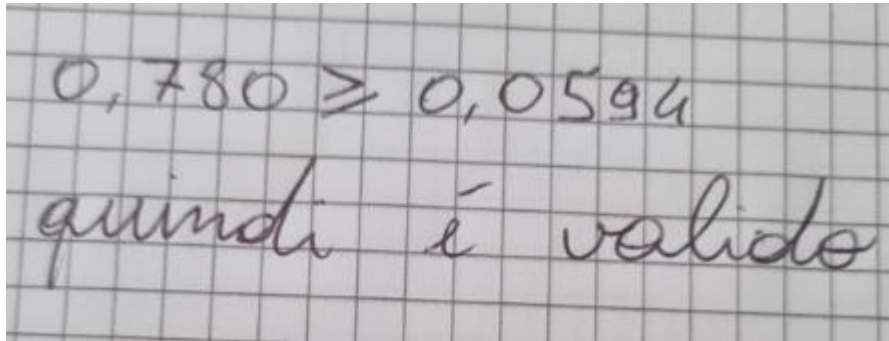 0,780 ≥ 0,0594
quindi é valido